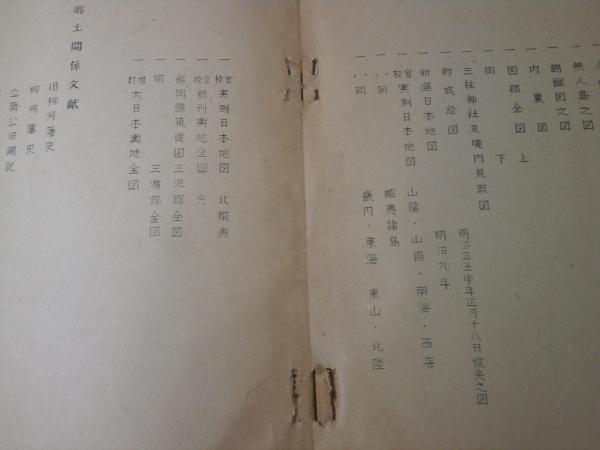 一 無人島之図
一 朝鮮国之図
一 内裏図
一 国郡全図 上
一 同 下
一 三柱神社及境内見取図 明治五壬申年正月十八日焼失之図
一 御城絵図 明治九年
一 新選日本地図
一 官校実測日本地図 山陰・山陽・南海・西海
一 〃 同 蝦夷諸島
一 〃 同 畿内・東海 東山・北陸
一 官校実測日本地図 北蝦夷
一 官校新刊輿地全図 完
一 福岡県筑後国三潴郡全図
一 同 三潴郡全図
一 増訂大日本輿地全図
郷土関係文献
旧柳河藩史
柳河藩史
立斎公旧聞記